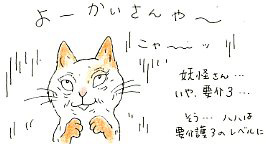 よーかいさんや〜
こゃ〜ッ
妖怪さん…
いや、要介3…
そう… ハハは
要介護3のレベルに